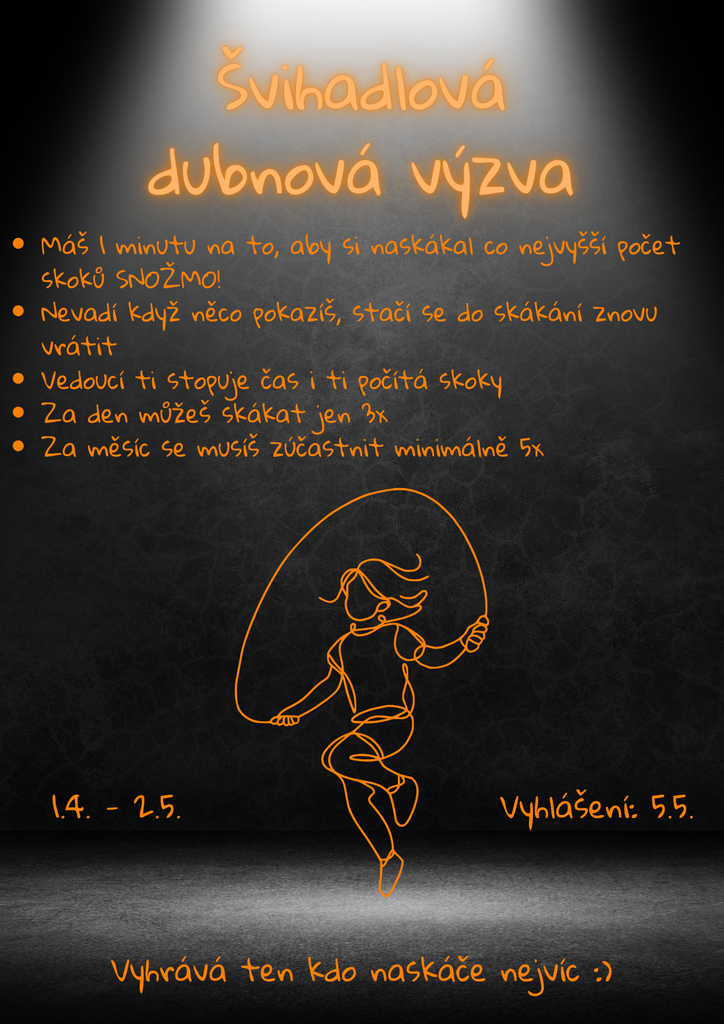 Švihadlová
dubnová výzva
• Máš 1 minutu na to, aby si naskákal co nejvyšší počet
skoků SNOŽMO!
• Nevadí když něco pokazíš, stačí se do skákání znovu
vrátit
• Vedoucí ti stopuje čas i ti počítá skoky
• Za den můžeš skákat jen 3x
• Za měsíc se musíš zúčastnit minimálně 5x
1.4. - 2.5.
Vyhlášení: 5.5.
Vyhrává ten kdo naskáče nejvíc :)